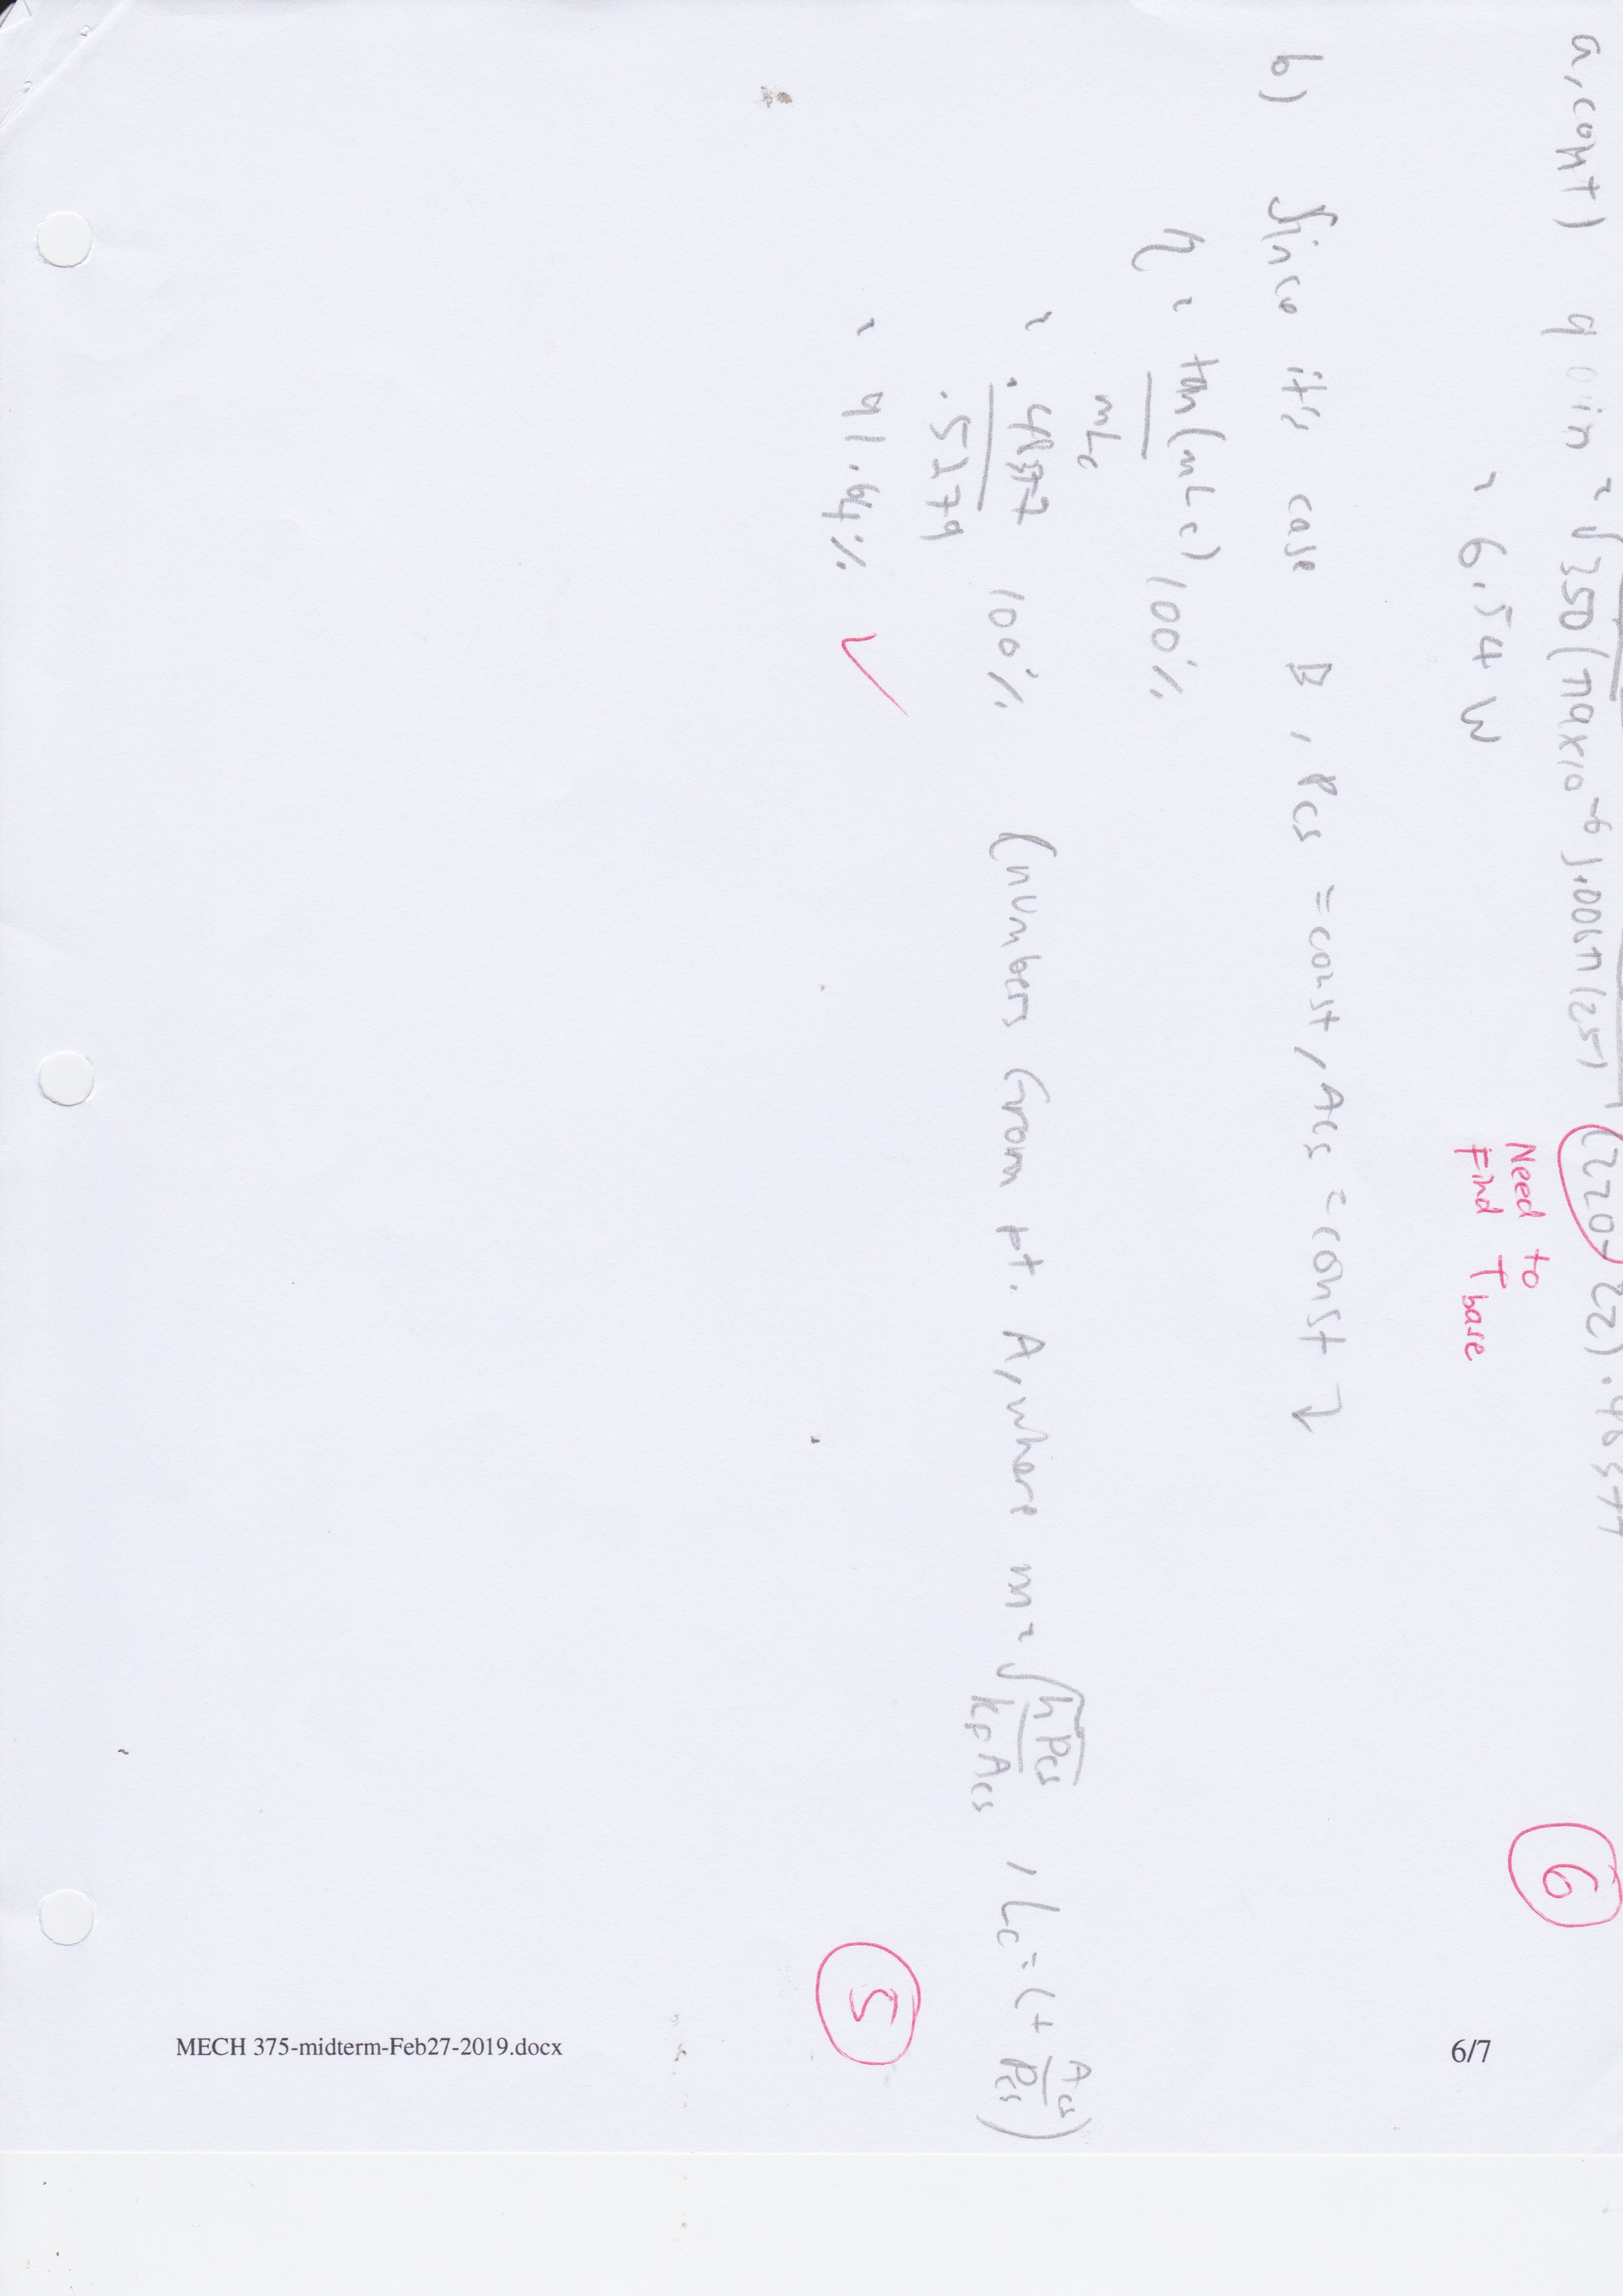 a, cont) q fin = √350(π9x10^-6).006π(25) (220-22).48377
= 6.54 W
Need to
Find T base
6
b) Since it's case B, Pcs = const, Acs = const ↴
η = tan(mLc) 100%
mLc
= .4837 100% (numbers from pt. A, where m = √hPcs , Lc = (+ Acs)
.5279 kF Acs Pcs
= 91.64% ✓
5
6/7
MECH 375-midterm-Feb27-2019.docx